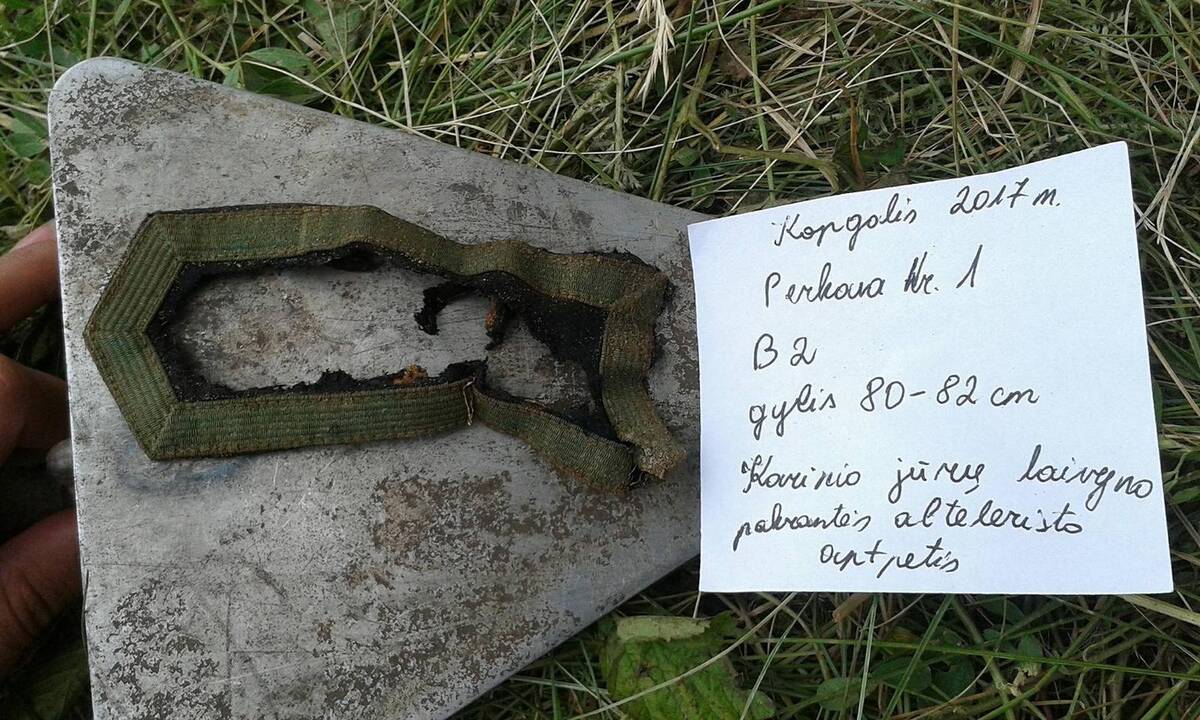 Kopgalis 2017 m.
Perkasa Nr. 1
B 2
gylis 80-82 cm
Karinio jūrų laivyno
pakrantės alteleristo
antpetis